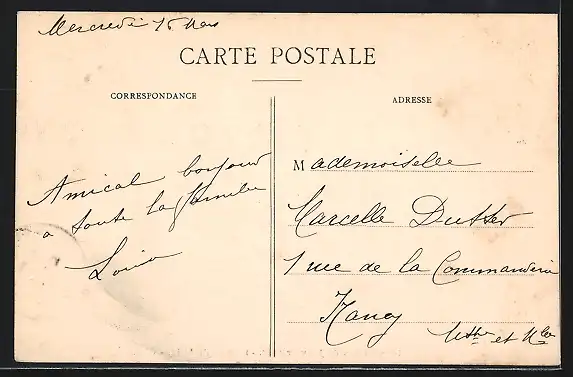 Mercredi 15 Mars
CARTE POSTALE
CORRESPONDANCE
ADRESSE
Amical bonjour
a toute la famille
Mademoiselle
Marcelle Dutter
1 rue de la Commanderie
Nancy
Mthe et Mlle